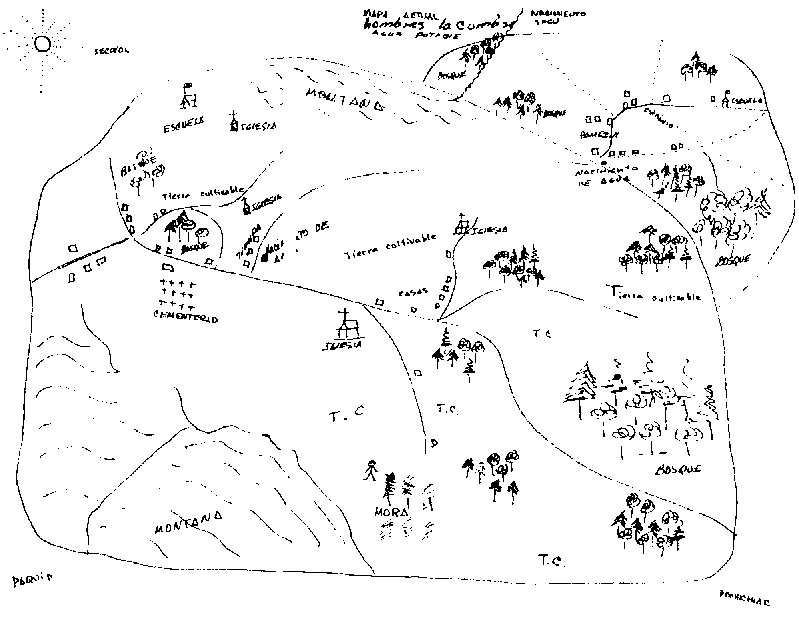 MAPA ACTUAL
hombres la Cumbre
AGUA POTABLE
NACIMIENTO
BOSQUE
MONTAÑA
ESCUELA
IGLESIA
BOSQUE
ESCUELA
CAMINO
NACIMIENTO
DE AGUA
BOSQUE
Tierra cultivable
IGLESIA
BOSQUE
BOSQUE
Tierra cultivable
IGLESIA
CASAS
Tierra cultivable
CEMENTERIO
IGLESIA
T.C
T.C
T.C.
BOSQUE
MORA
MONTAÑA
T.C.